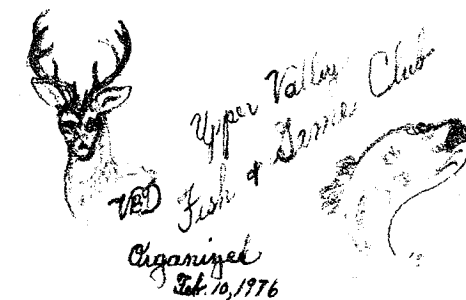 Upper Valley
Fish & Game Club
VBD
Organized
Feb. 10, 1976